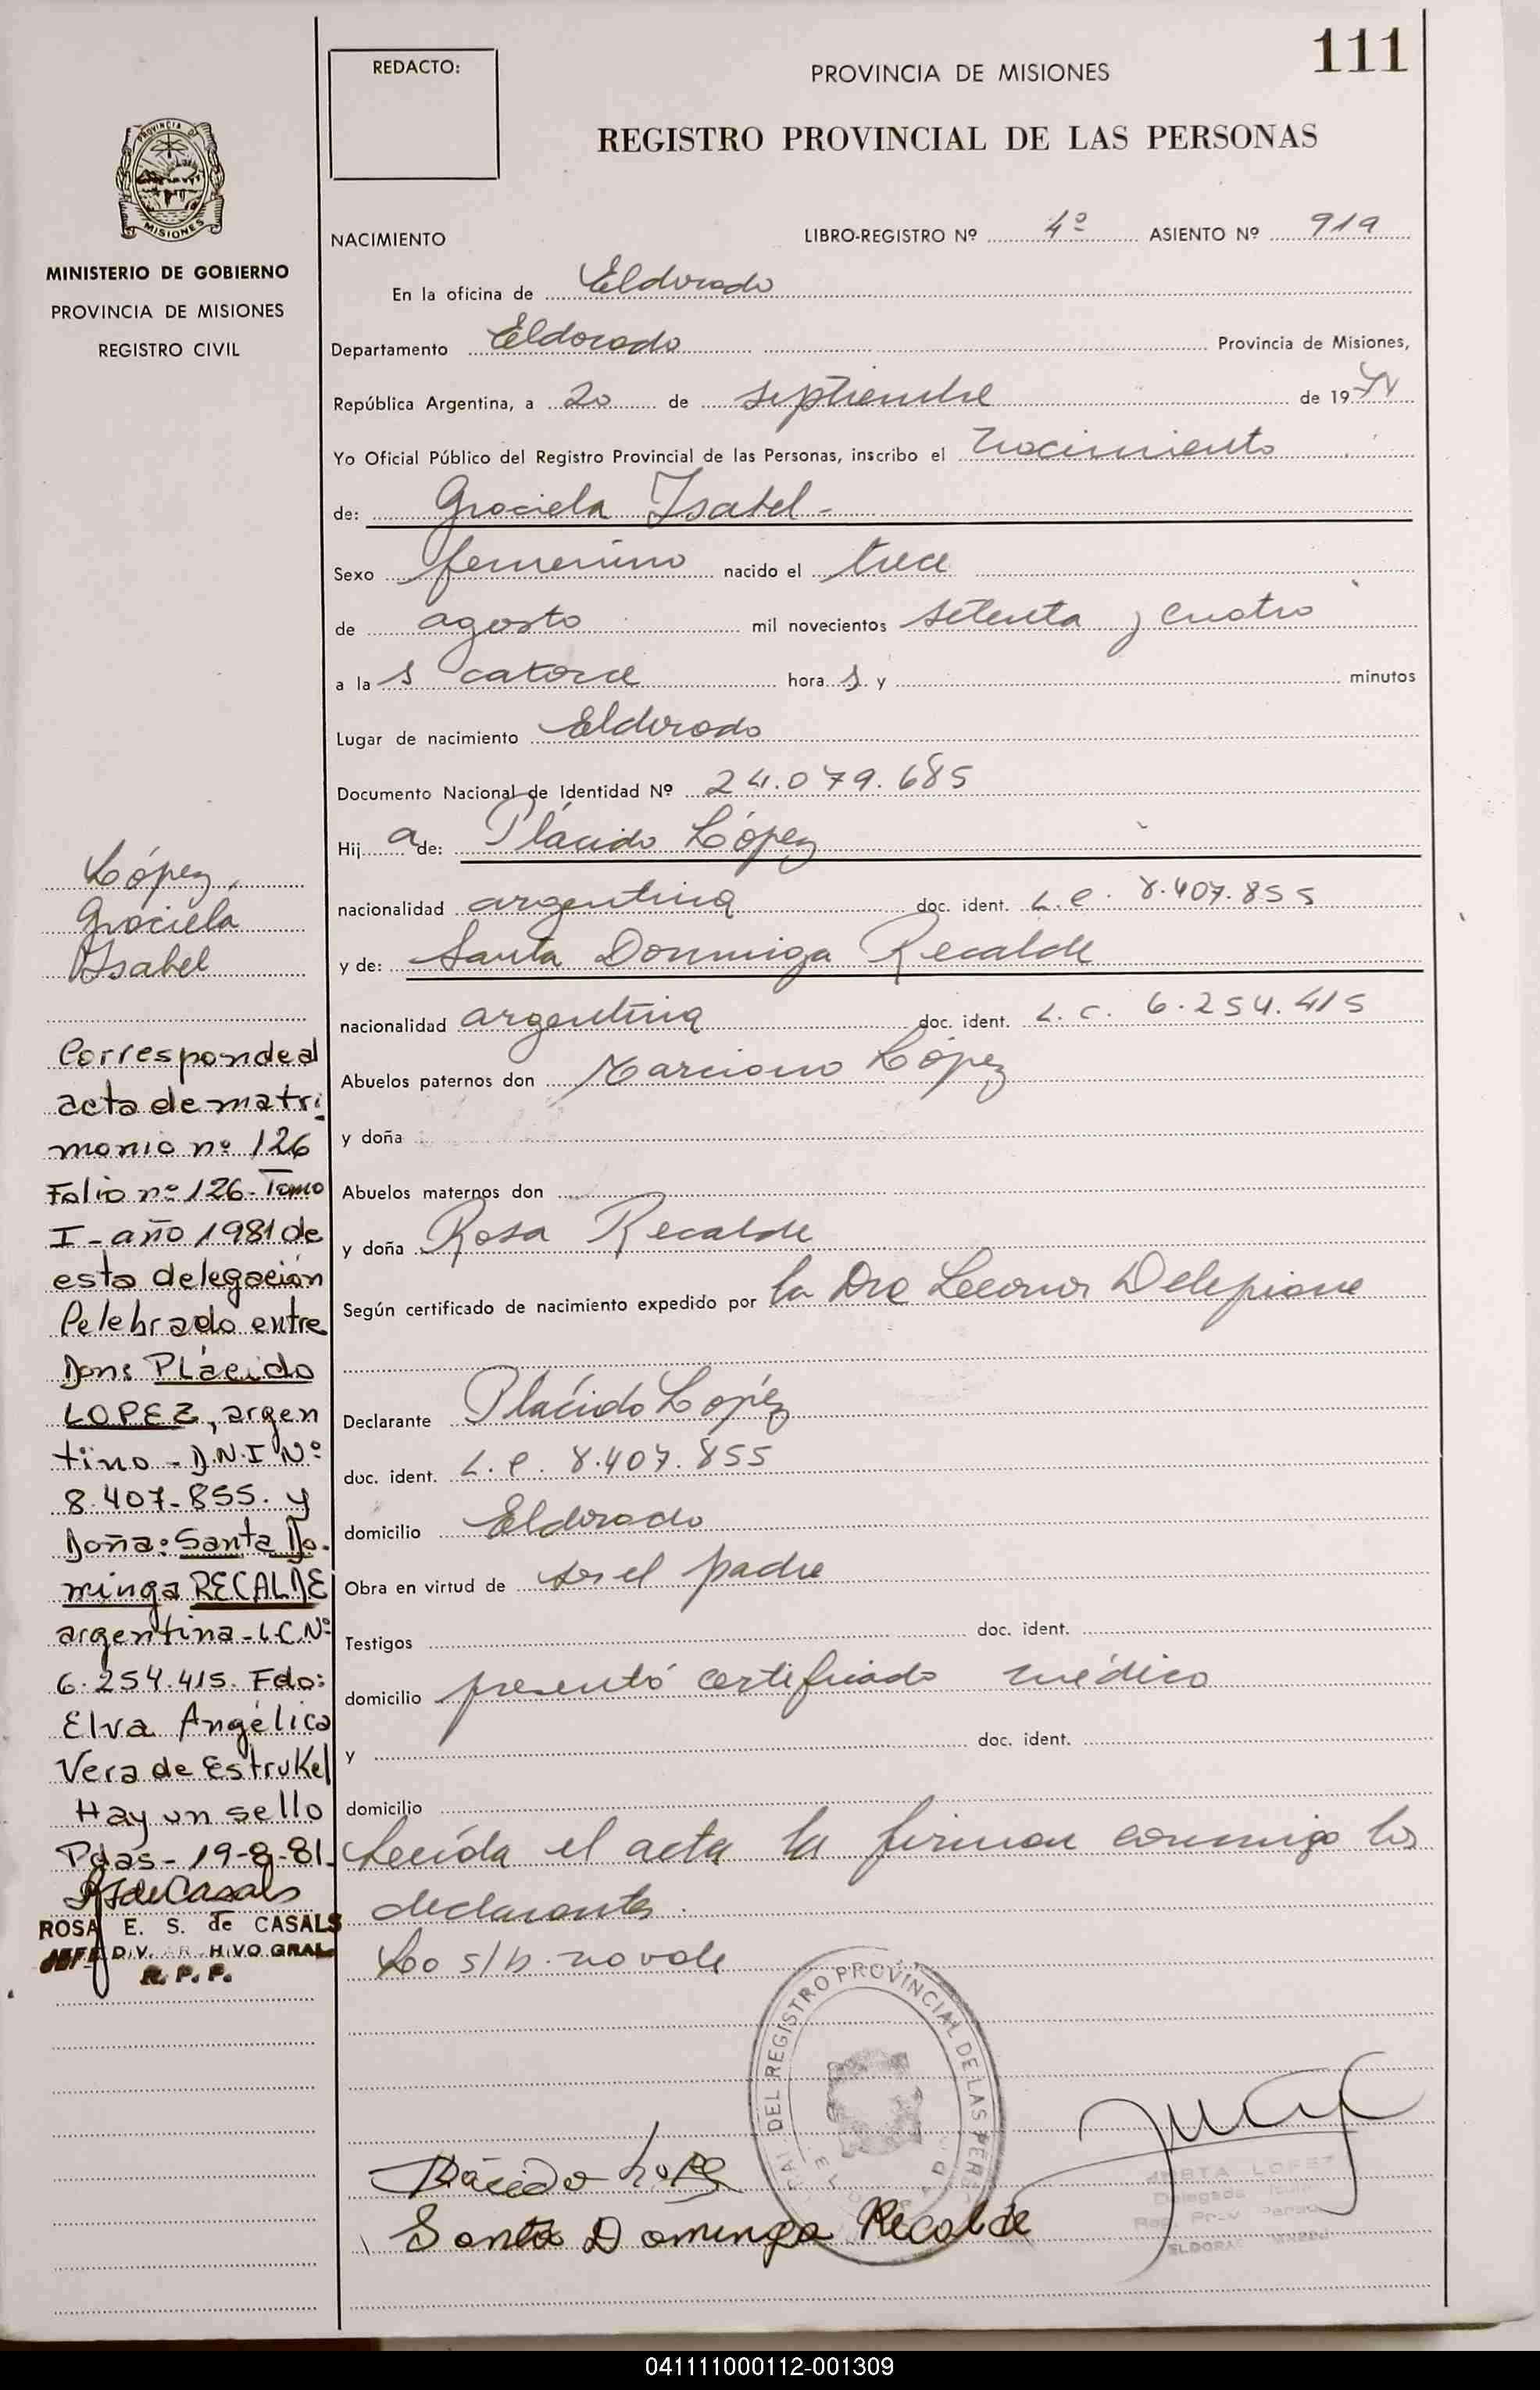 111
REDACTO:
PROVINCIA DE MISIONES
REGISTRO PROVINCIAL DE LAS PERSONAS
PROVINCIA DE
MISIONES
MINISTERIO DE GOBIERNO
PROVINCIA DE MISIONES
REGISTRO CIVIL
NACIMIENTO LIBRO-REGISTRO Nº 4º ASIENTO Nº 919
En la oficina de Eldorado
Departamento Eldorado Provincia de Misiones,
República Argentina, a 20 de septiembre de 1974
Yo Oficial Público del Registro Provincial de las Personas, inscribo el nacimiento
de: Graciela Isabel -
Sexo femenino nacido el trece
de agosto mil novecientos setenta y cuatro
a la s catorce hora s y minutos
Lugar de nacimiento Eldorado
Documento Nacional de Identidad Nº 24.079.685
Hij a de: Plácido López
nacionalidad argentina doc. ident. L.E. 8.407.855
y de: Santa Dominga Recalde
nacionalidad argentina doc. ident. L.C. 6.254.415
Abuelos paternos don Marciano López
y doña
Abuelos maternos don
y doña Rosa Recalde
Según certificado de nacimiento expedido por la Dra Leonor Delepiane
Declarante Plácido López
doc. ident. L.E. 8.407.855
domicilio Eldorado
Obra en virtud de ser el padre
Testigos doc. ident.
domicilio presentó certificado médico
y doc. ident.
domicilio
Leída el acta la firman conmigo los
declarantes.
Lo s/b. no vale
López,
Graciela
Isabel
Corresponde al
acta de matri
monio nº 126
Folio nº 126- Tomo
I - año 1981 de
esta delegación
Celebrado entre
Don: Plácido
LOPEZ, argen
tino - D.N.I Nº
8.407-855. y
Doña: Santa Do-
minga RECALDE
argentina - L.C.Nº
6.254.415. Fdo:
Elva Angélica
Vera de Estrukel
Hay un sello
Pdas - 19-8-81.
RSdeCasals
ROSA E. S. de CASALS
JEFE DIV. ARCHIVO GRAL.
R. P. P.
DEL REGISTRO PROVINCIAL DE LAS PERS
Plácido López
Santa Dominga Recalde
LOPEZ
Delegada
041111000112-001309